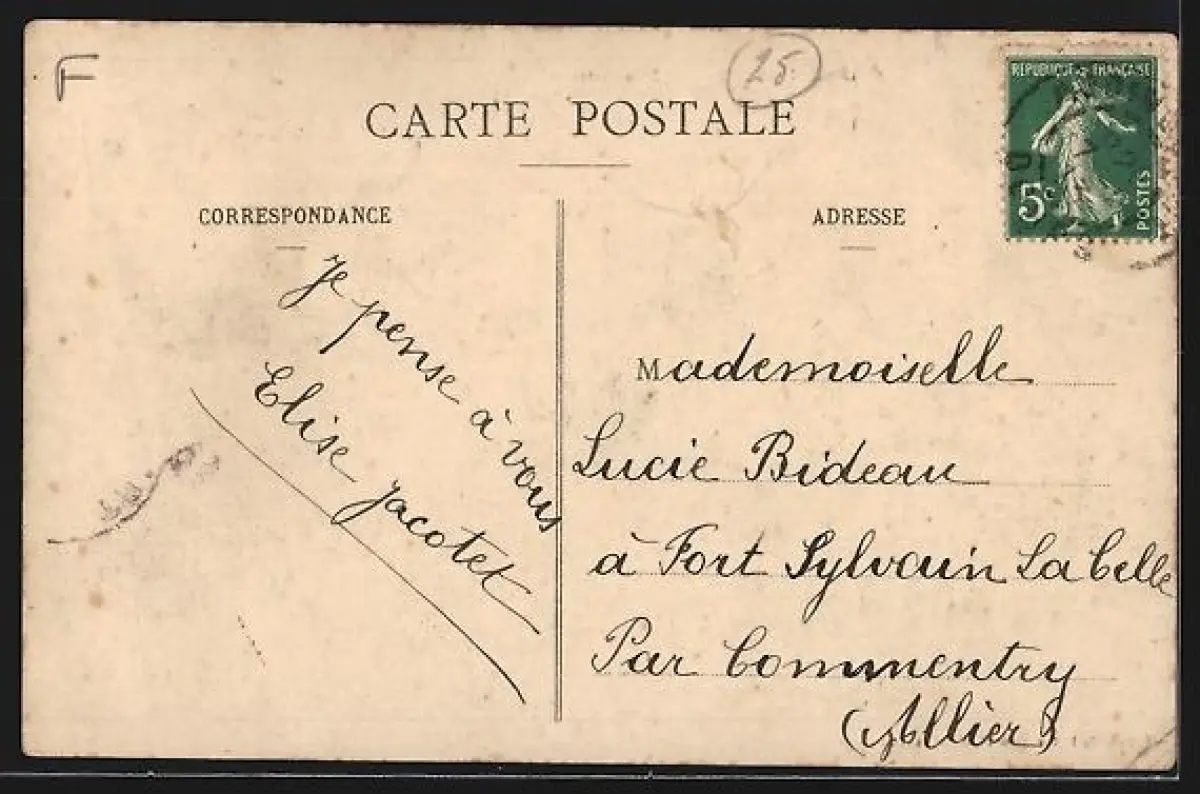 F
25.
CARTE POSTALE
RÉPUBLIQUE FRANÇAISE
5c
POSTES
CORRESPONDANCE
Je pense à vous
Elise Jacotet
ADRESSE
Mademoiselle
Lucie Bideau
à Fort Sylvain La Celle
Par Commentry
(Allier)